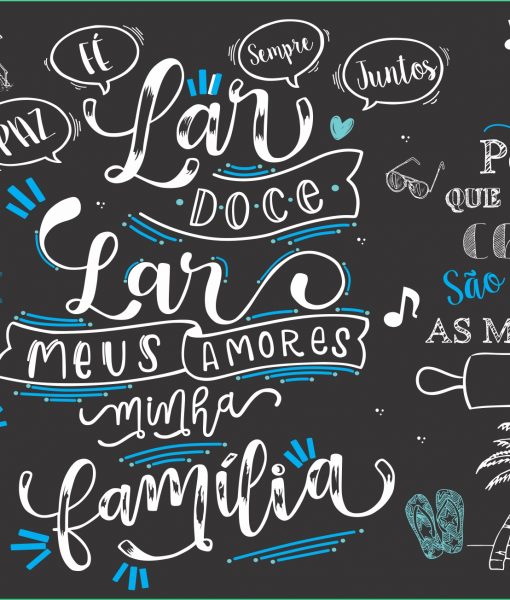 FÉ
Sempre
Juntos
PAZ
Lar
DOCE
Lar
MEUS AMORES
minha
família
QUE
São
AS M